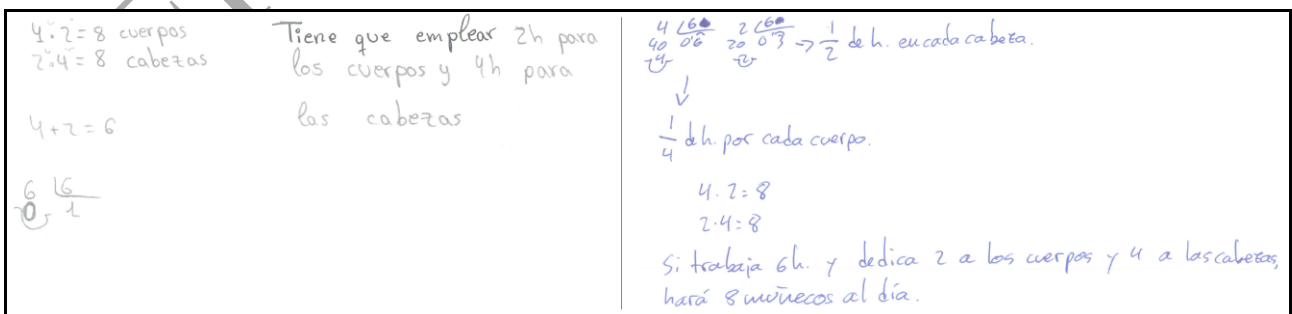 4·2=8 cuerpos
2·4=8 cabezas
4+2=6
6 |6
0 1
Tiene que emplear 2h para
los cuerpos y 4h para
las cabezas
4 |6 2 |6
40 0'6 20 0'3 → 1/2 de h. en cada cabeza.
4 2
↓
1/4 de h. por cada cuerpo.
4·2=8
2·4=8
Si trabaja 6h. y dedica 2 a los cuerpos y 4 a las cabezas,
hará 8 muñecos al día.